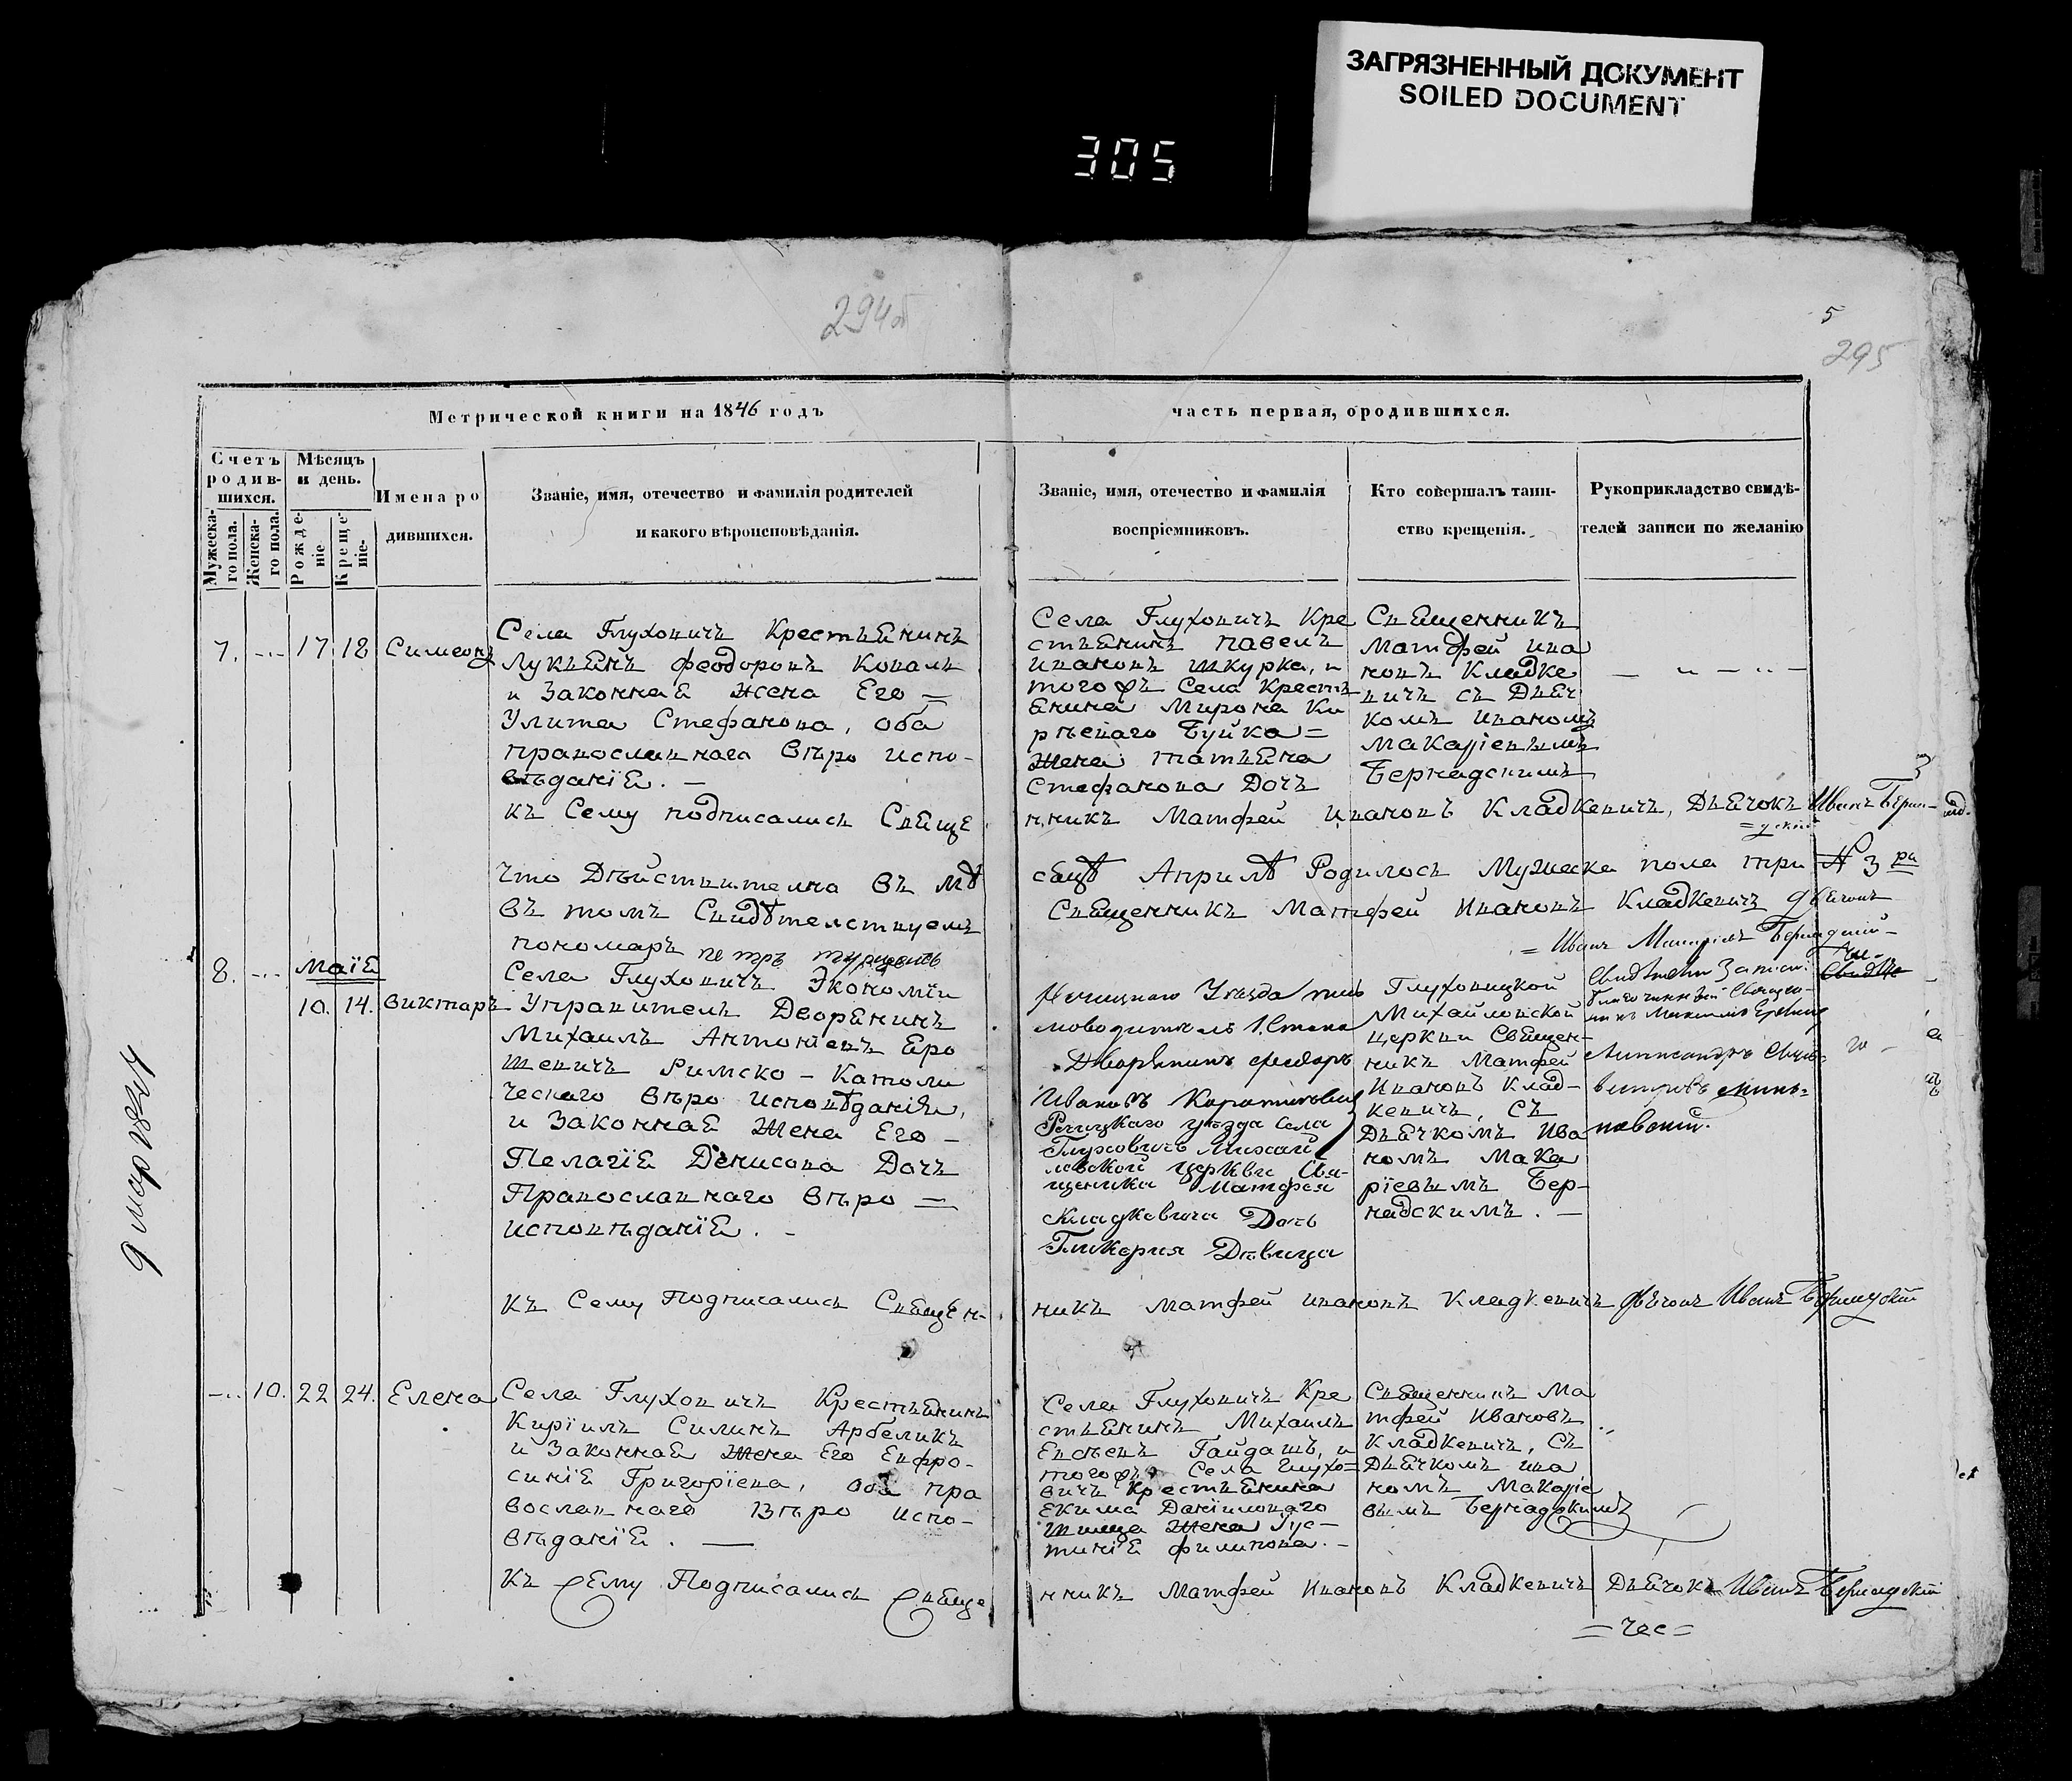 ЗАГРЯЗНЕННЫЙ ДОКУМЕНТ
SOILED DOCUMENT
305
294об
5
295
Метрической книги на 1846 годъ
часть первая, ородившихся.
Счетъ
родив-
шихся.
Мужеска-
го пола.
Женска-
го пола.
Мѣсяцъ
и день.
Рожде-
ніе
Креще-
ніе.
Имена ро
дившихся.
Званіе, имя, отечество и фамилія родителей
и какого вѣроисповѣданія.
Званіе, имя, отечество и фамилія
воспріемниковъ.
Кто совершалъ таин-
ство крещенія.
Рукоприкладство свидѣ-
телей записи по желанію
7. 17 18 Симеонъ
Села Глуховичъ Крестьянинъ
Лукьянъ Феодоровъ Коваль
и Законная жена Его =
Улита Стефанова, оба
православнаго вѣро испо-
вѣданія. —
Села Глуховичъ Кре
стьянинъ Павелъ
Ивановъ Шкурка, и
тогожъ Села Кресть
янина Мирона Ки
рѣеваго Буйка =
Жена Татьяна
Стефанова Дочь
Священникъ
Матфей Ива
новъ Кладке
вичъ съ Дьяч
комъ Иваномъ
Макаріевымъ
Бернадскимъ
къ Сему подписались Свяще
нникъ Матфей Ивановъ Кладкевичъ, Дьячокъ Иванъ Берна-
=дскій
что Дѣйствительно въ мѣ
сяцѣ Априлѣ Родилось Мужеска пола три № 3 ри
въ томъ Свидѣтелствуемъ
Священникъ Матфей Ивановъ Кладкевичъ дьячокъ
= Иванъ Макаріевъ Бернадскій -
пономарь Петръ
8. Маія
10. 14. Викторъ
Села Глуховичъ Экономіи
Управитель Дворянинъ
Михаилъ Антоніевъ Еро
шевичъ Римско - Католи
ческаго вѣро исповѣданія,
и Законная Жена Его -
Пелагія Денисова Дочь
Православнаго вѣро —
исповѣданія. -
Уѣзда
Дворянинъ
Ивановъ
Рѣчицкаго уѣзда Села
Глуховичъ Михай
ловской Церкви Свя-
щеника Матфея
Кладкевича Дочь
Гликерия Дѣвица
Глуховицкой
Михайловской
Церкви Священ-
никъ Матфей
Ивановъ Клад-
кевичъ, съ
Дьячкомъ Ива
номъ Мака
ріевымъ Бер-
надскимъ. —
9 мар 1854
къ Сему Подписались Священ-
никъ Матфей Ивановъ Кладкевичъ дьячокъ Иванъ Бернадскій
10. 22 24. Елена
Села Глуховичъ Крестьянинъ
Кирiилъ Силинъ Арбеликъ
и Законная Жена Его Евфро-
синія Григоріева, оба пра
вославнаго вѣро испо-
вѣданія. —
Села Глуховичъ Кре
стьянинъ Михаилъ
Евсѣевъ Гайдашъ, и
тогожъ Села Глухо=
вичъ Крестьянина
Екима Даніиловаго
Жена Іус-
тинія Филипова. -
Священникъ Ма
тфей Ивановъ
Кладкевичъ, съ
Дьячкомъ Ива
номъ Макаріе
вымъ Бернадскимъ
Къ Сему Подписались Свяще
нникъ Матфей Ивановъ Кладкевичъ Дьячокъ Иванъ Бернадскій
= чес =